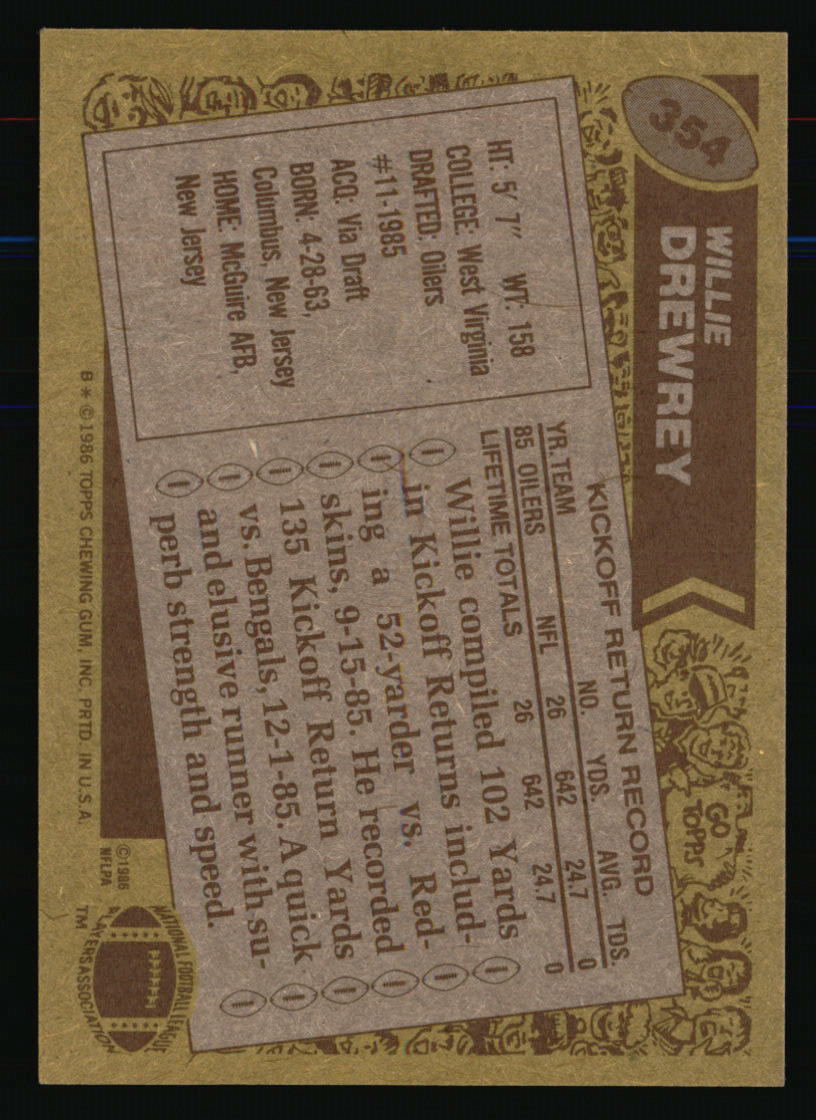 354
WILLIE
DREWREY
HT: 5' 7" WT: 158
COLLEGE: West Virginia
DRAFTED: Oilers
#11-1985
ACQ: Via Draft
BORN: 4-28-63,
Columbus, New Jersey
HOME: McGuire AFB,
New Jersey
KICKOFF RETURN RECORD
YR. TEAM NO. YDS. AVG. TDS.
85 OILERS NFL 26 642 24.7 0
LIFETIME TOTALS 26 642 24.7 0
Willie compiled 102 Yards
in Kickoff Returns includ-
ing a 52-yarder vs. Red-
skins, 9-15-85. He recorded
135 Kickoff Return Yards
vs. Bengals, 12-1-85. A quick
and elusive runner with su-
perb strength and speed.
GO
TOPPS
B * ©1986 TOPPS CHEWING GUM, INC. PRTD. IN U.S.A.
©1986
NFLPA
NATIONAL FOOTBALL LEAGUE
PLAYERS ASSOCIATION
TM